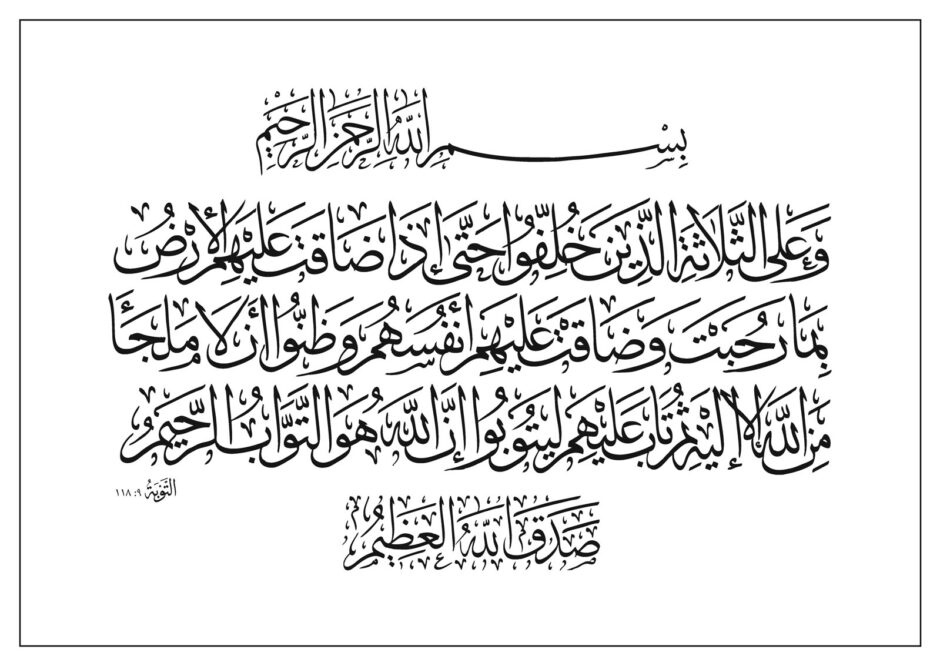 بِسْمِ اللهِ الرَّحْمٰنِ الرَّحِيْمِ
وَعَلَى الثَّلَاثَةِ الَّذِينَ خُلِّفُوا حَتَّى إِذَا ضَاقَتْ عَلَيْهِمُ الْأَرْضُ
بِمَا رَحُبَتْ وَضَاقَتْ عَلَيْهِمْ أَنْفُسُهُمْ وَظَنُّوا أَنْ لَا مَلْجَأَ
مِنَ اللَّهِ إِلَّا إِلَيْهِ ثُمَّ تَابَ عَلَيْهِمْ لِيَتُوبُوا إِنَّ اللَّهَ هُوَ التَّوَّابُ الرَّحِيمُ
التَّوْبَةُ ٩: ١١٨
صَدَقَ اللهُ الْعَظِيْمُ